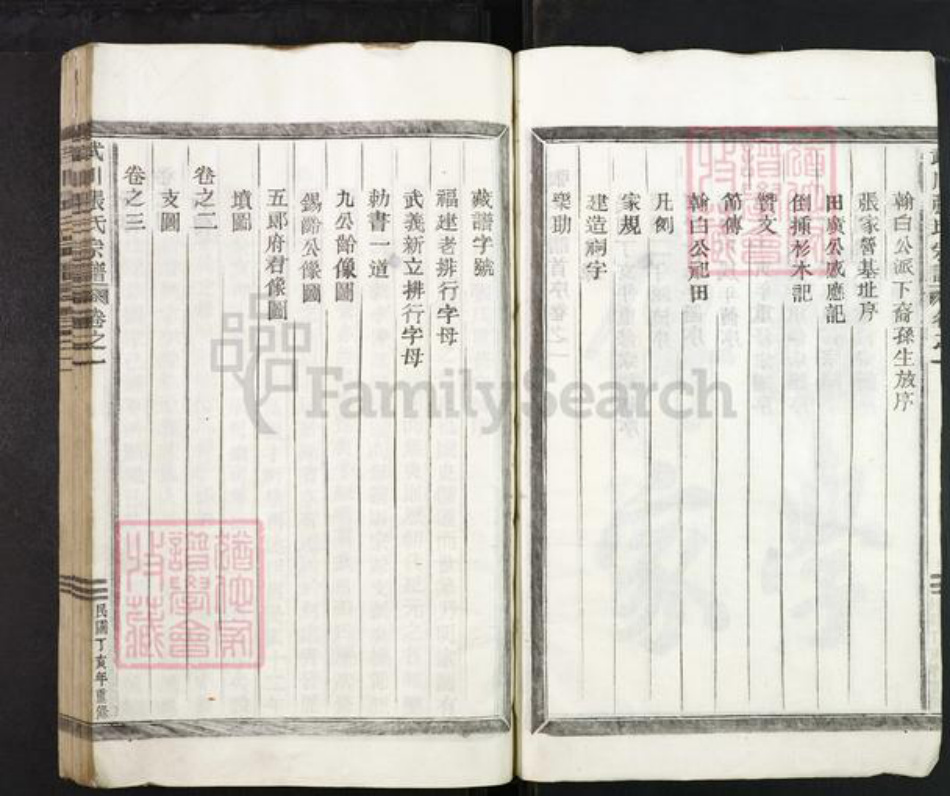 翰白公派下裔孫生放序
張家營基址序
田廣公感應記
倒插杉木記
贊文
節傳
翰白公祀田
凡例
家規
建造祠宇
樂助
藏譜字號
福建老排行字母
武義新立排行字母
勅書一道
九公齡像圖
錫齡公像圖
五郎府君像圖
墳圖
卷之二
支圖
卷之三
武川張氏宗譜
卷之一
民國丁亥年重修
猶他家譜學會收藏
猶他家譜學會收藏
FamilySearch